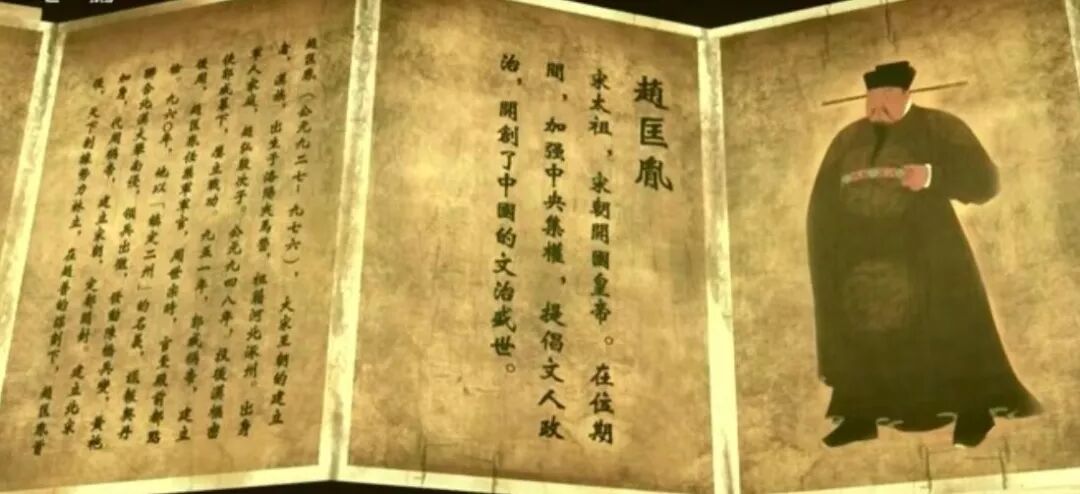 趙匡胤
宋太祖，宋朝開國皇帝。在位期
間，加强中央集權，提倡文人政
治，開創了中國的文治盛世。
趙匡胤（公元九二七-九七六），大宋王朝的建立
者，漢族，出生于洛陽夾馬營，祖籍河北涿州。出身
軍人家庭，趙弘殷次子。公元九四八年，投後漢樞密
使郭威幕下，屢立戰功。九五一年，郭威稱帝，建立
後周，趙匡胤任禁軍軍官，周世宗時，官至殿前都點
檢。九六〇年，他以「鎮定二州」的名義，謊報契丹
聯合北漢大舉南侵，領兵出征，發動陳橋兵變，黃袍
加身，代周稱帝，建立宋朝，定都開封。建立北宋
後，天下割據勢力林立，在趙普的謀劃下，趙匡胤首